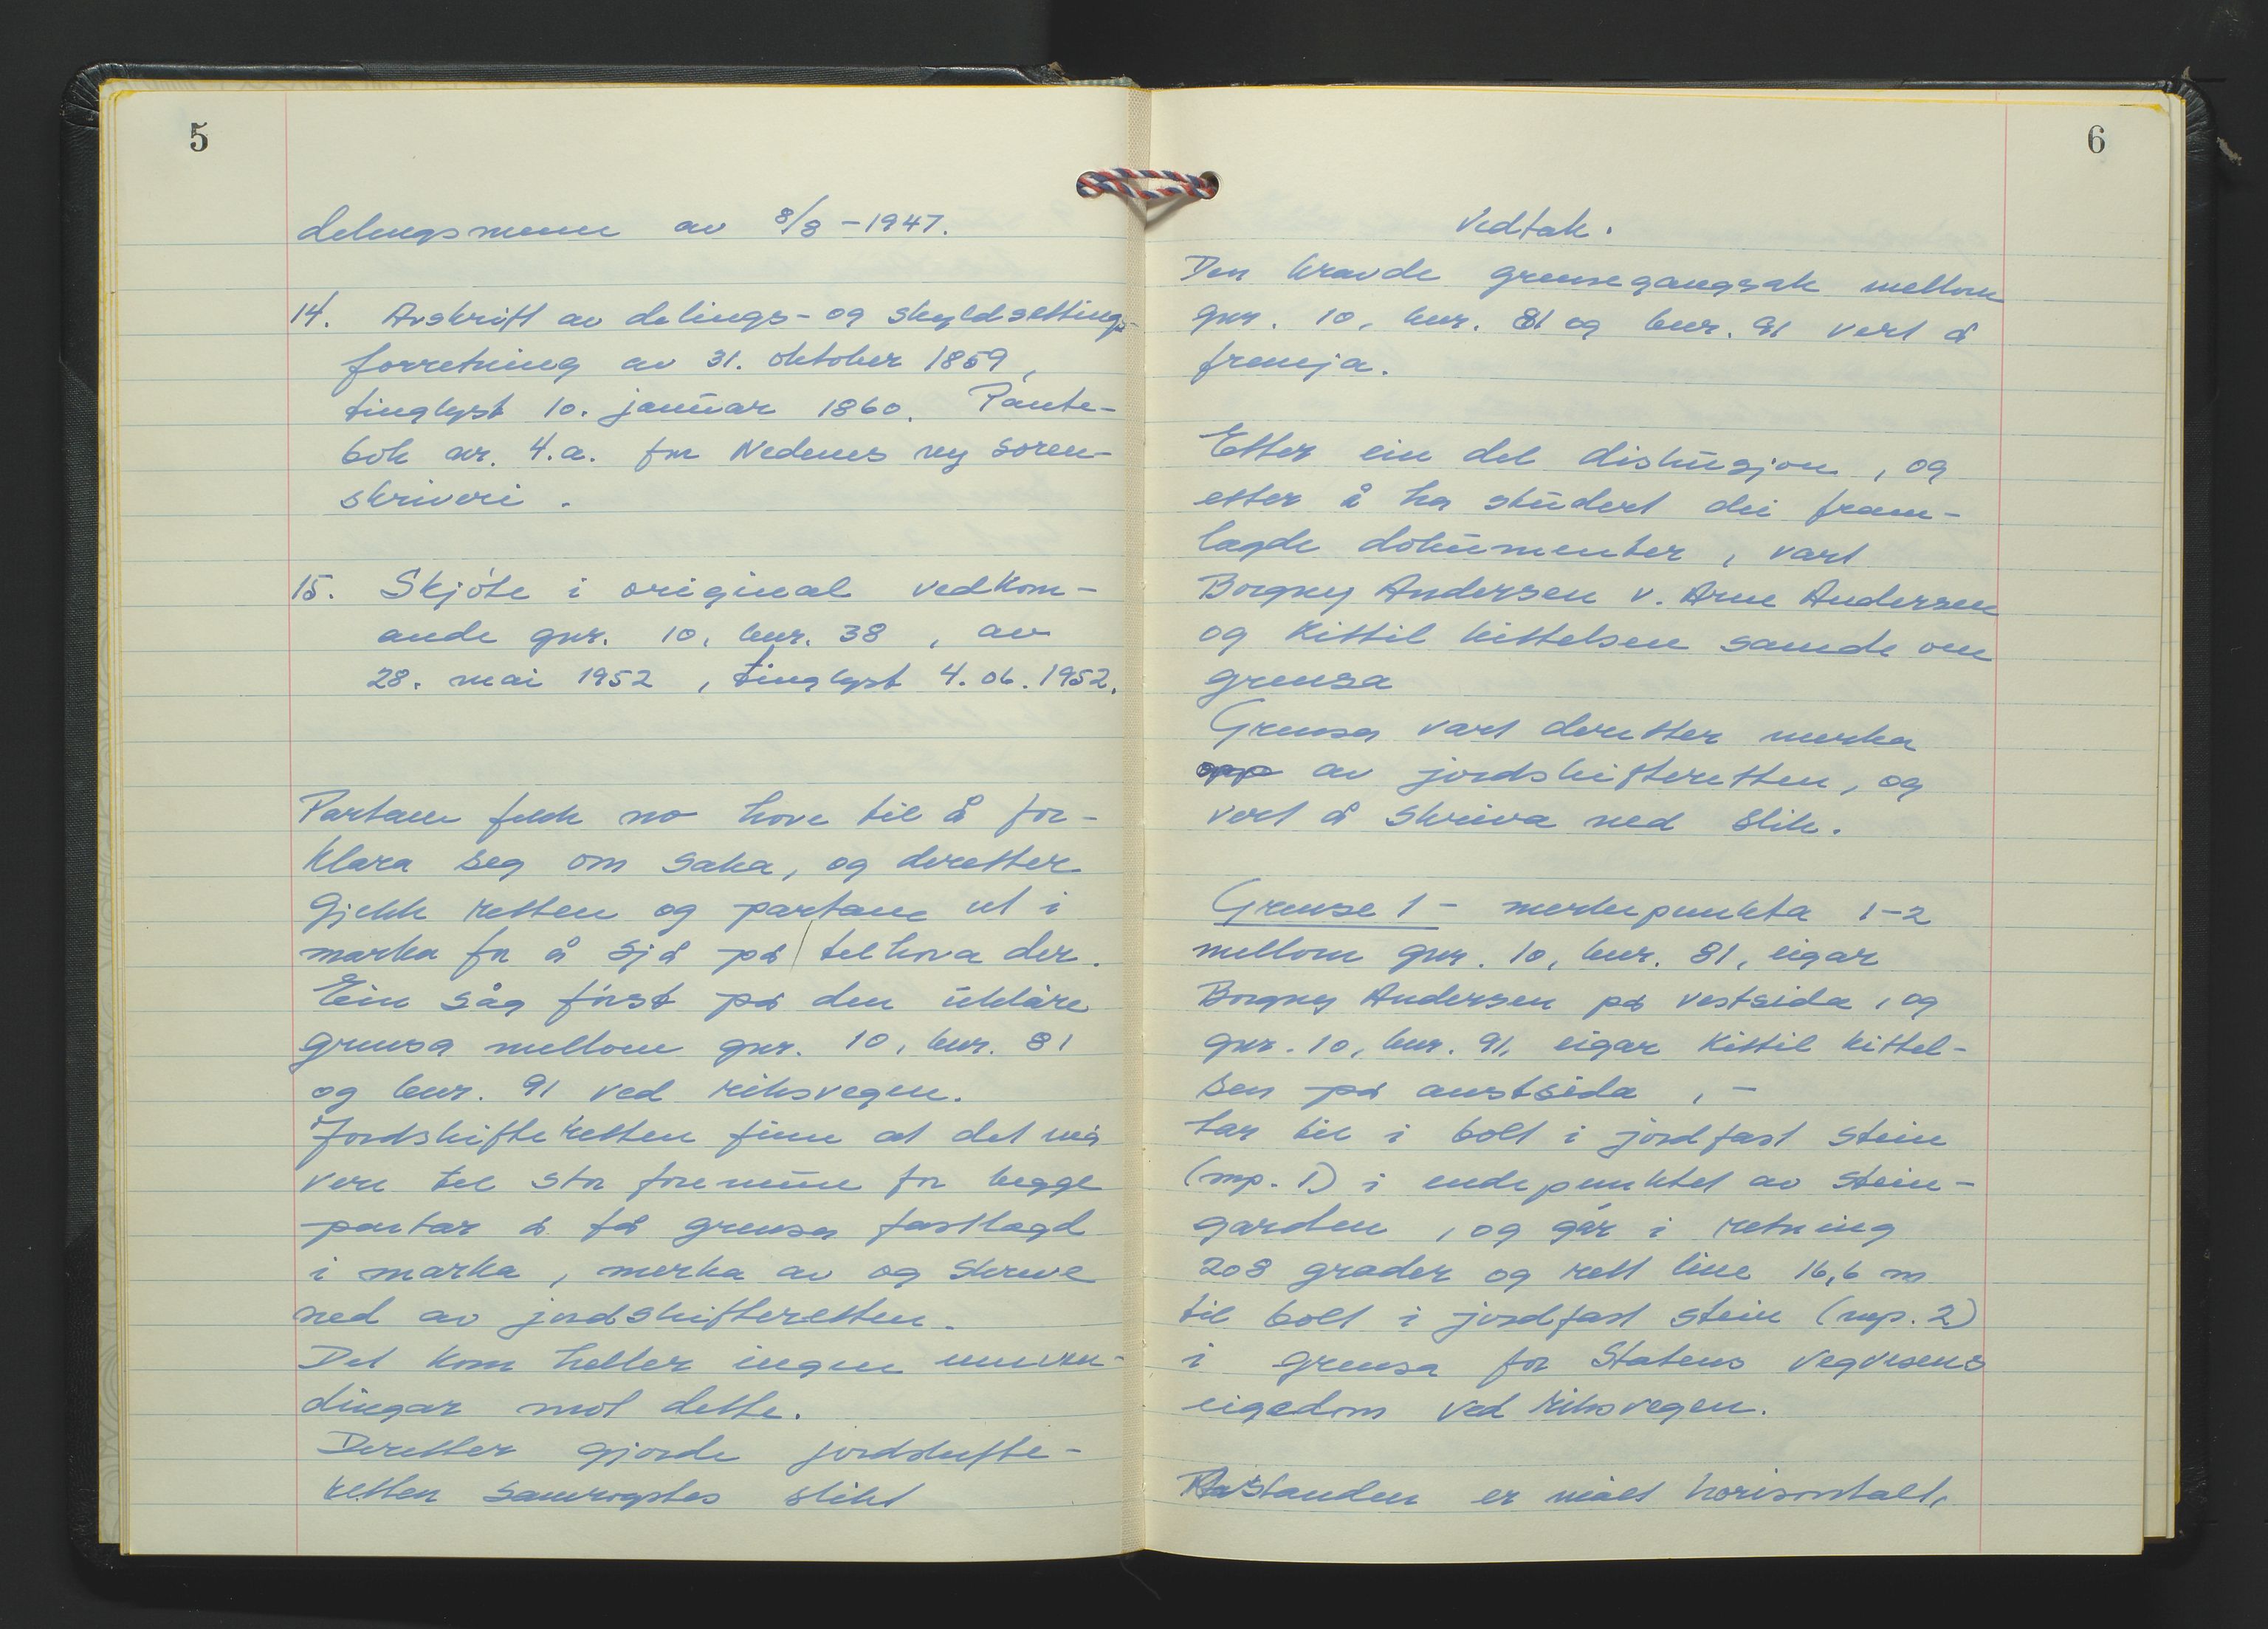 5
delingsmenn av 8/8-1947.
14. Avskrift av delings- og skyldsettings-
forretning av 31. oktober 1859,
tinglyst 10. januar 1860. Pante-
bok nr. 4.a. for Nedenes soren-
skriveri.
15. Skjøte i original vedkom-
ande gnr. 10, bnr. 38, av
28. mai 1952, tinglyst 4.06.1952.
Partane fekk no høve til å for-
klara seg om saka, og deretter
gjekk retten og partane ut i
marka for å sjå på tilhøva der.
Ein såg først på den uklåre
grensa mellom gnr. 10, bnr. 81
og bnr. 91 ved riksvegen.
Jordskifteretten finn at det må
vere til stor føremune for begge
partar å få grensa fastlagd
i marka, merka av og skrive
ned av jordskifteretten.
Det kom heller ingen innven-
dingar mot dette.
Deretter gjorde jordskifte-
retten samrøystes slikt
6
Vedtak.
Den kravde grensegangsak mellom
gnr. 10, bnr. 81 og bnr. 91 vert å
fremja.
Etter ein del diskusjon, og
etter å ha studert dei fram-
lagde dokumenter, vart
Borgny Andersen v. Arne Andersen
og Kittil Kittelsen samde om
grensa
Grensa vart deretter merka
opp av jordskifteretten, og
vert å skriva ned slik.
Grense 1 - merkepunkta 1-2
mellom gnr. 10, bnr. 81, eigar
Borgny Andersen på vestsida, og
gnr. 10, bnr. 91, eigar Kittil Kittel-
sen på austsida, -
tar til i bolt i jordfast stein
(mp. 1) i endepunktet av stein-
garden, og går i retning
208 grader og rett line 16,6 m
til bolt i jordfast stein (mp. 2)
i grensa for Statens vegvesens
eigedom ved riksvegen.
Avstanden er målt horisontalt,